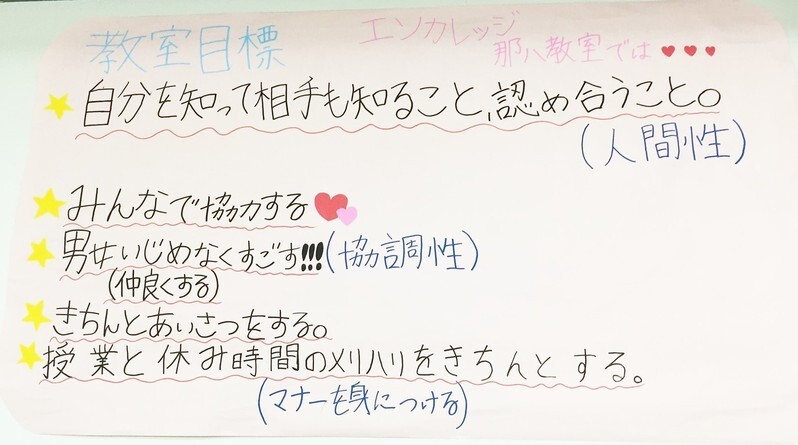 教室目標
エンカレッジ
那八教室では
自分を知って相手も知ること、認め合うこと。
(人間性)
みんなで協力する
男女いじめなくすごす!!!(協調性)
(仲良くする)
きちんとあいさつをする。
授業と休み時間のメリハリをきちんとする。
(マナーを身につける)